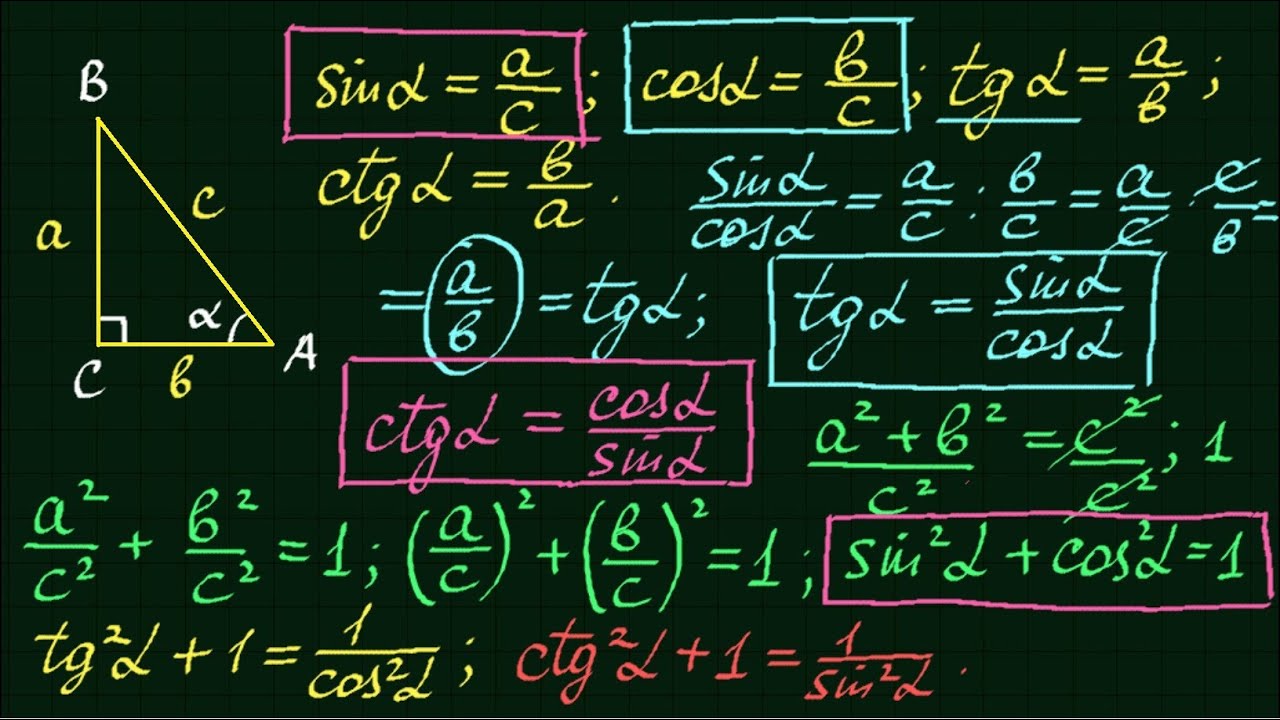 B
a
c
α
C
в
A
sinα = a/c ; cosα = в/c ; tgα = a/в ;
ctgα = в/a .
sinα/cosα = a/c : в/c = a/c · c/в =
= a/в = tgα; tgα = sinα/cosα
ctgα = cosα/sinα
a² + в²/c² = c²/c² ; 1
a²/c² + в²/c² = 1 ; (a/c)² + (в/c)² = 1 ; sin²α + cos²α = 1
tg²α + 1 = 1/cos²α ; ctg²α + 1 = 1/sin²α .